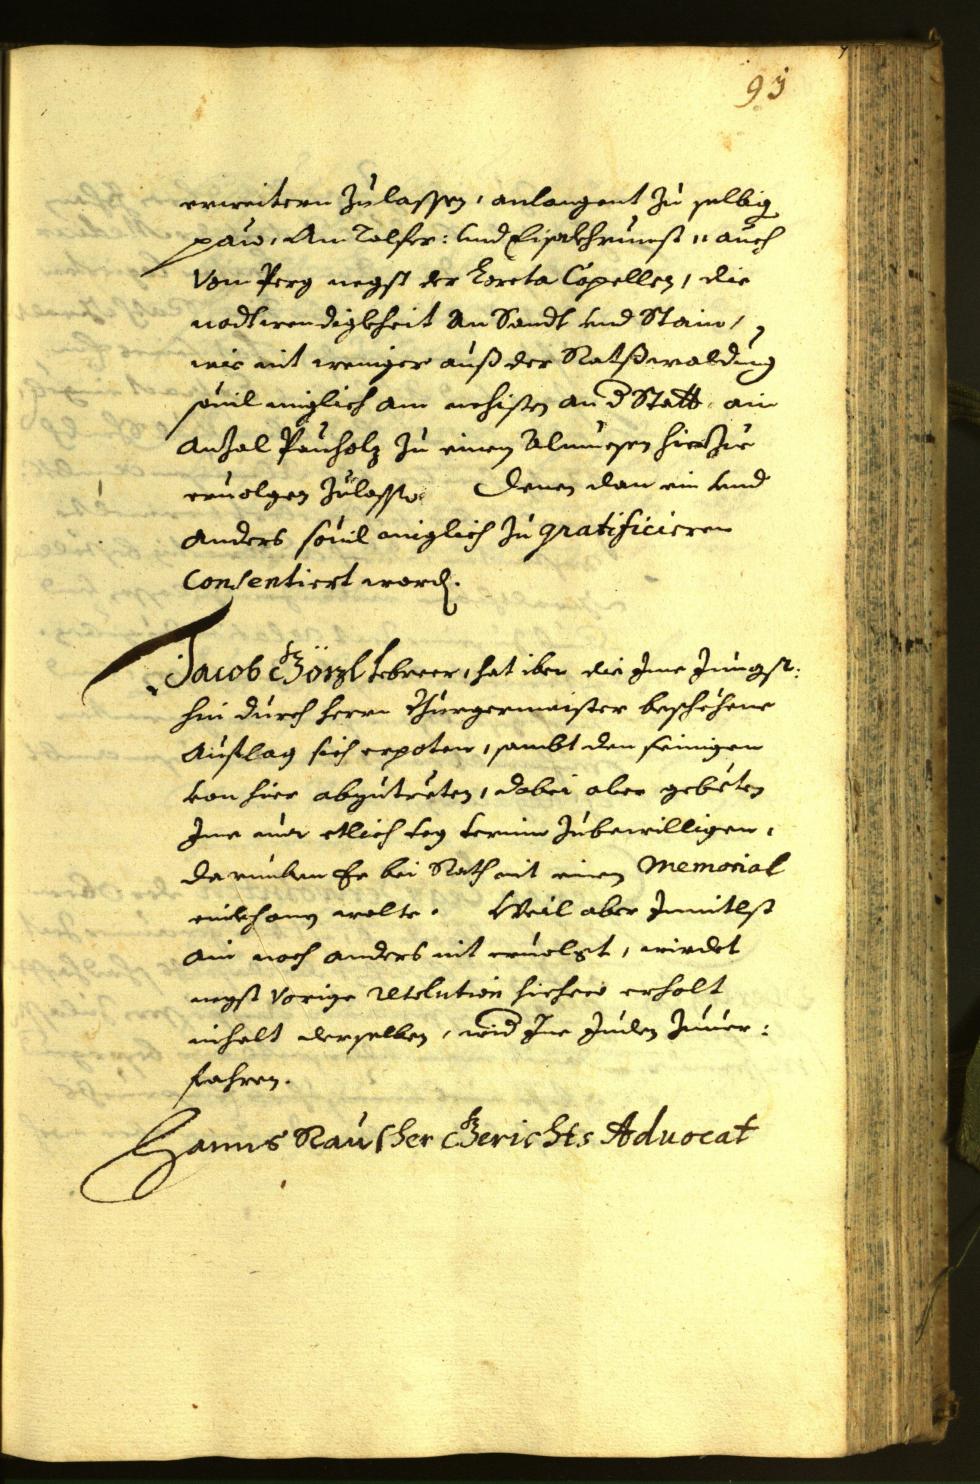 93
erweitern Zulassen, anlangent Zu selbig
paw, Am Talfer: und Eisackhrunst, auch
Vom Perg negst der Loreta Capellen, die
nodtwendigkheit An Sandt und Stain,
wie nit weniger auß der Statßwaldung
souil miglich am nehisten an d Statt, ain
Anzal Pauholz Zu einen Almuesen hierzue
eruolgen Zulassen. Denen dan ein und
anders souil miglich Zu gratificieren
Consentiert word.
Jacob Görzl lebzer, hat iber die Ime Jungst:
hin durch herrn Burgermaister beschehene
Auflag sich erpoten, sambt den seinigen
von hier abzutreten, dabei aber gebeten
Ime nur etlich tag termin Zubewilligen,
darumben Er bei Rath mit einen Memorial
einkhomen welle. Weil aber Inmitlst
ain noch anders nit eruolgt, wirdet
negst Vorige Resolution hiehero erholt
inhalt derselben, wid Ine Juden Zuuer:
fahren.
Hanns Rauscher Gerichts Aduocat